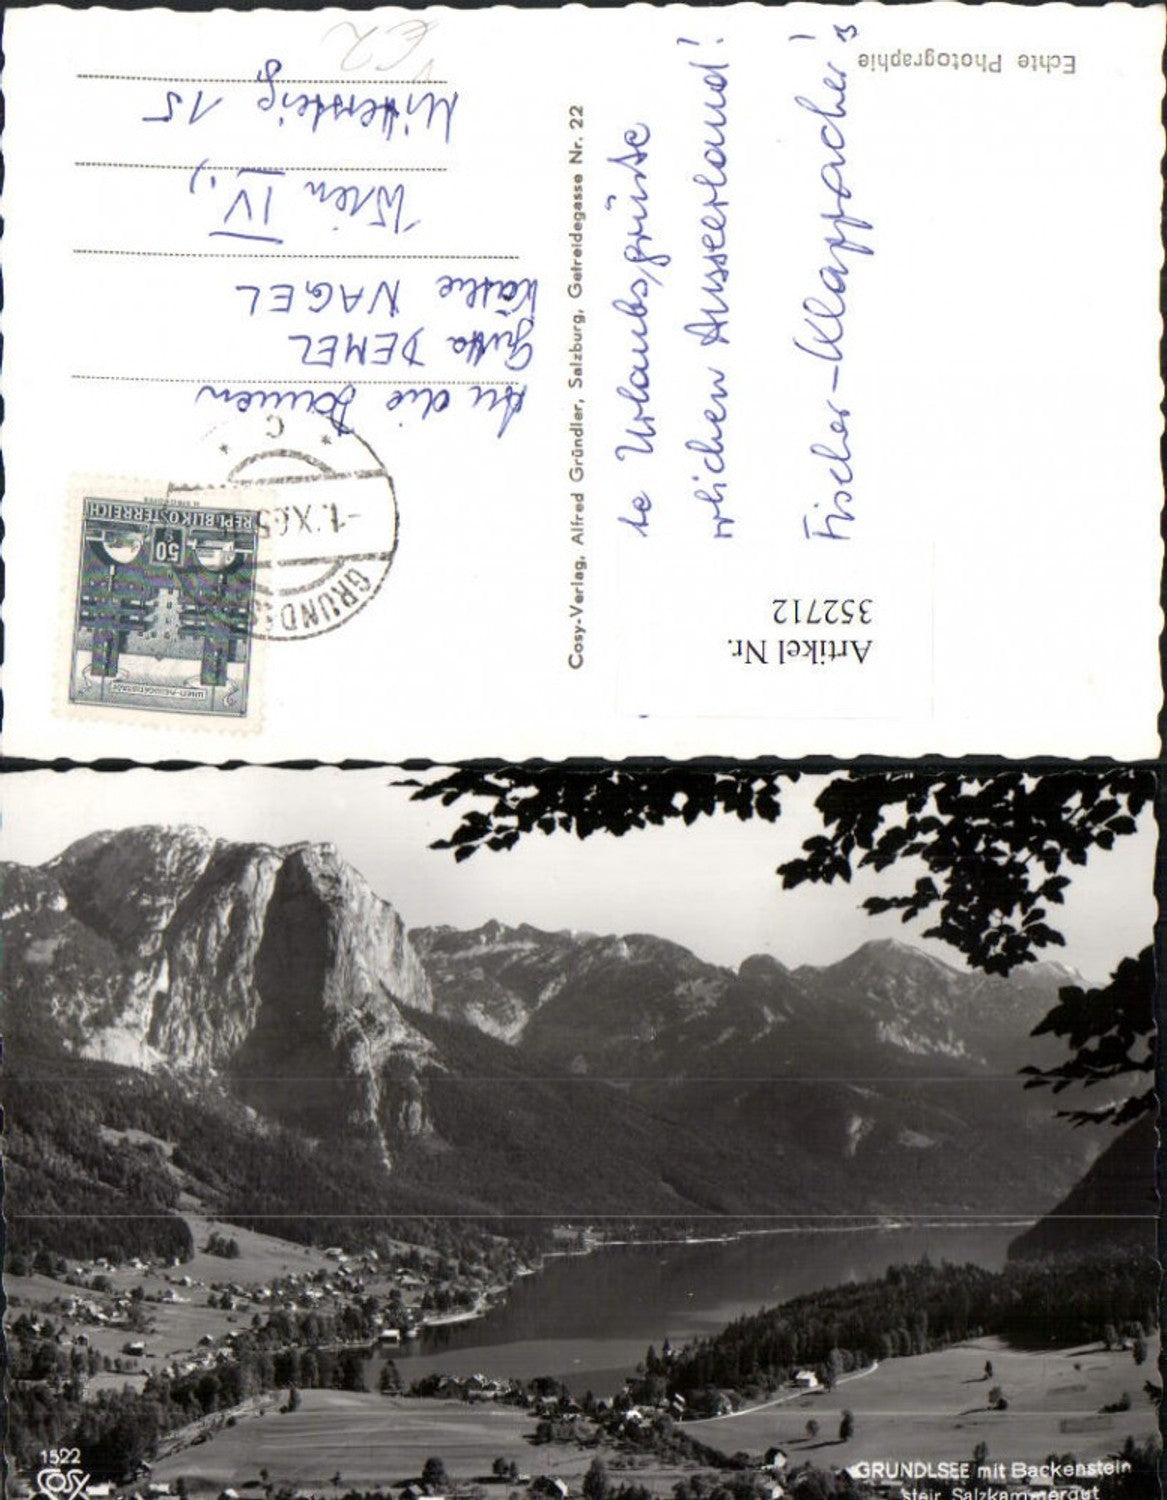 Echte Photographie
te Urlaubsgrüße
rlichen Ausseerland!
Fischer-Klappacher!
Artikel Nr.
352712
Cosy-Verlag, Alfred Gründler, Salzburg, Getreidegasse Nr. 22
REPUBLIK ÖSTERREICH
50
WIEN-HEILIGENSTADT
GRUNDLS
-1.X.65
* C *
An die Damen
Gutta DEMEL
Käthe NAGEL
Wien IV.,
Mittersteig 15
8
€2
1522
COSY
GRUNDLSEE mit Backenstein
steir. Salzkammergut